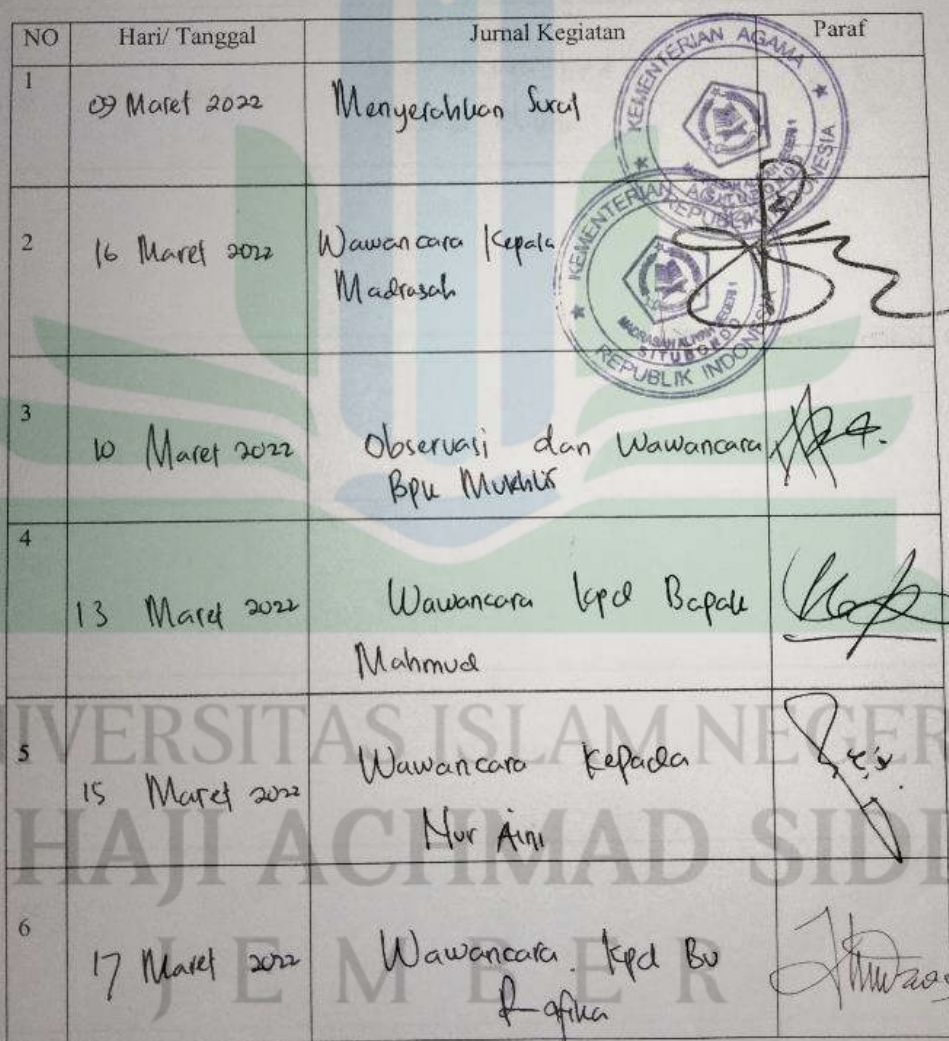 NO Hari/ Tanggal Jurnal Kegiatan Paraf
1 09 Maret 2022 Menyerahkan Surat
KEMENTERIAN AGAMA
REPUBLIK INDONESIA
2 16 Maret 2022 Wawancara Kepala
Madrasah
KEMENTERIAN
MADRASAH ALIYAH NEGERI 1
SITUBONDO
REPUBLIK INDONESIA
3 10 Maret 2022 Observasi dan Wawancara
Bpk Mukhlis
4 13 Maret 2022 Wawancara kpd Bapak
Mahmud
5 15 Maret 2022 Wawancara Kepada
Nur Aini
6 17 Maret 2022 Wawancara kpd Bu
Rafika
IVERSITAS ISLAM NEGER
HAJI ACHMAD SIDD
JEMBER